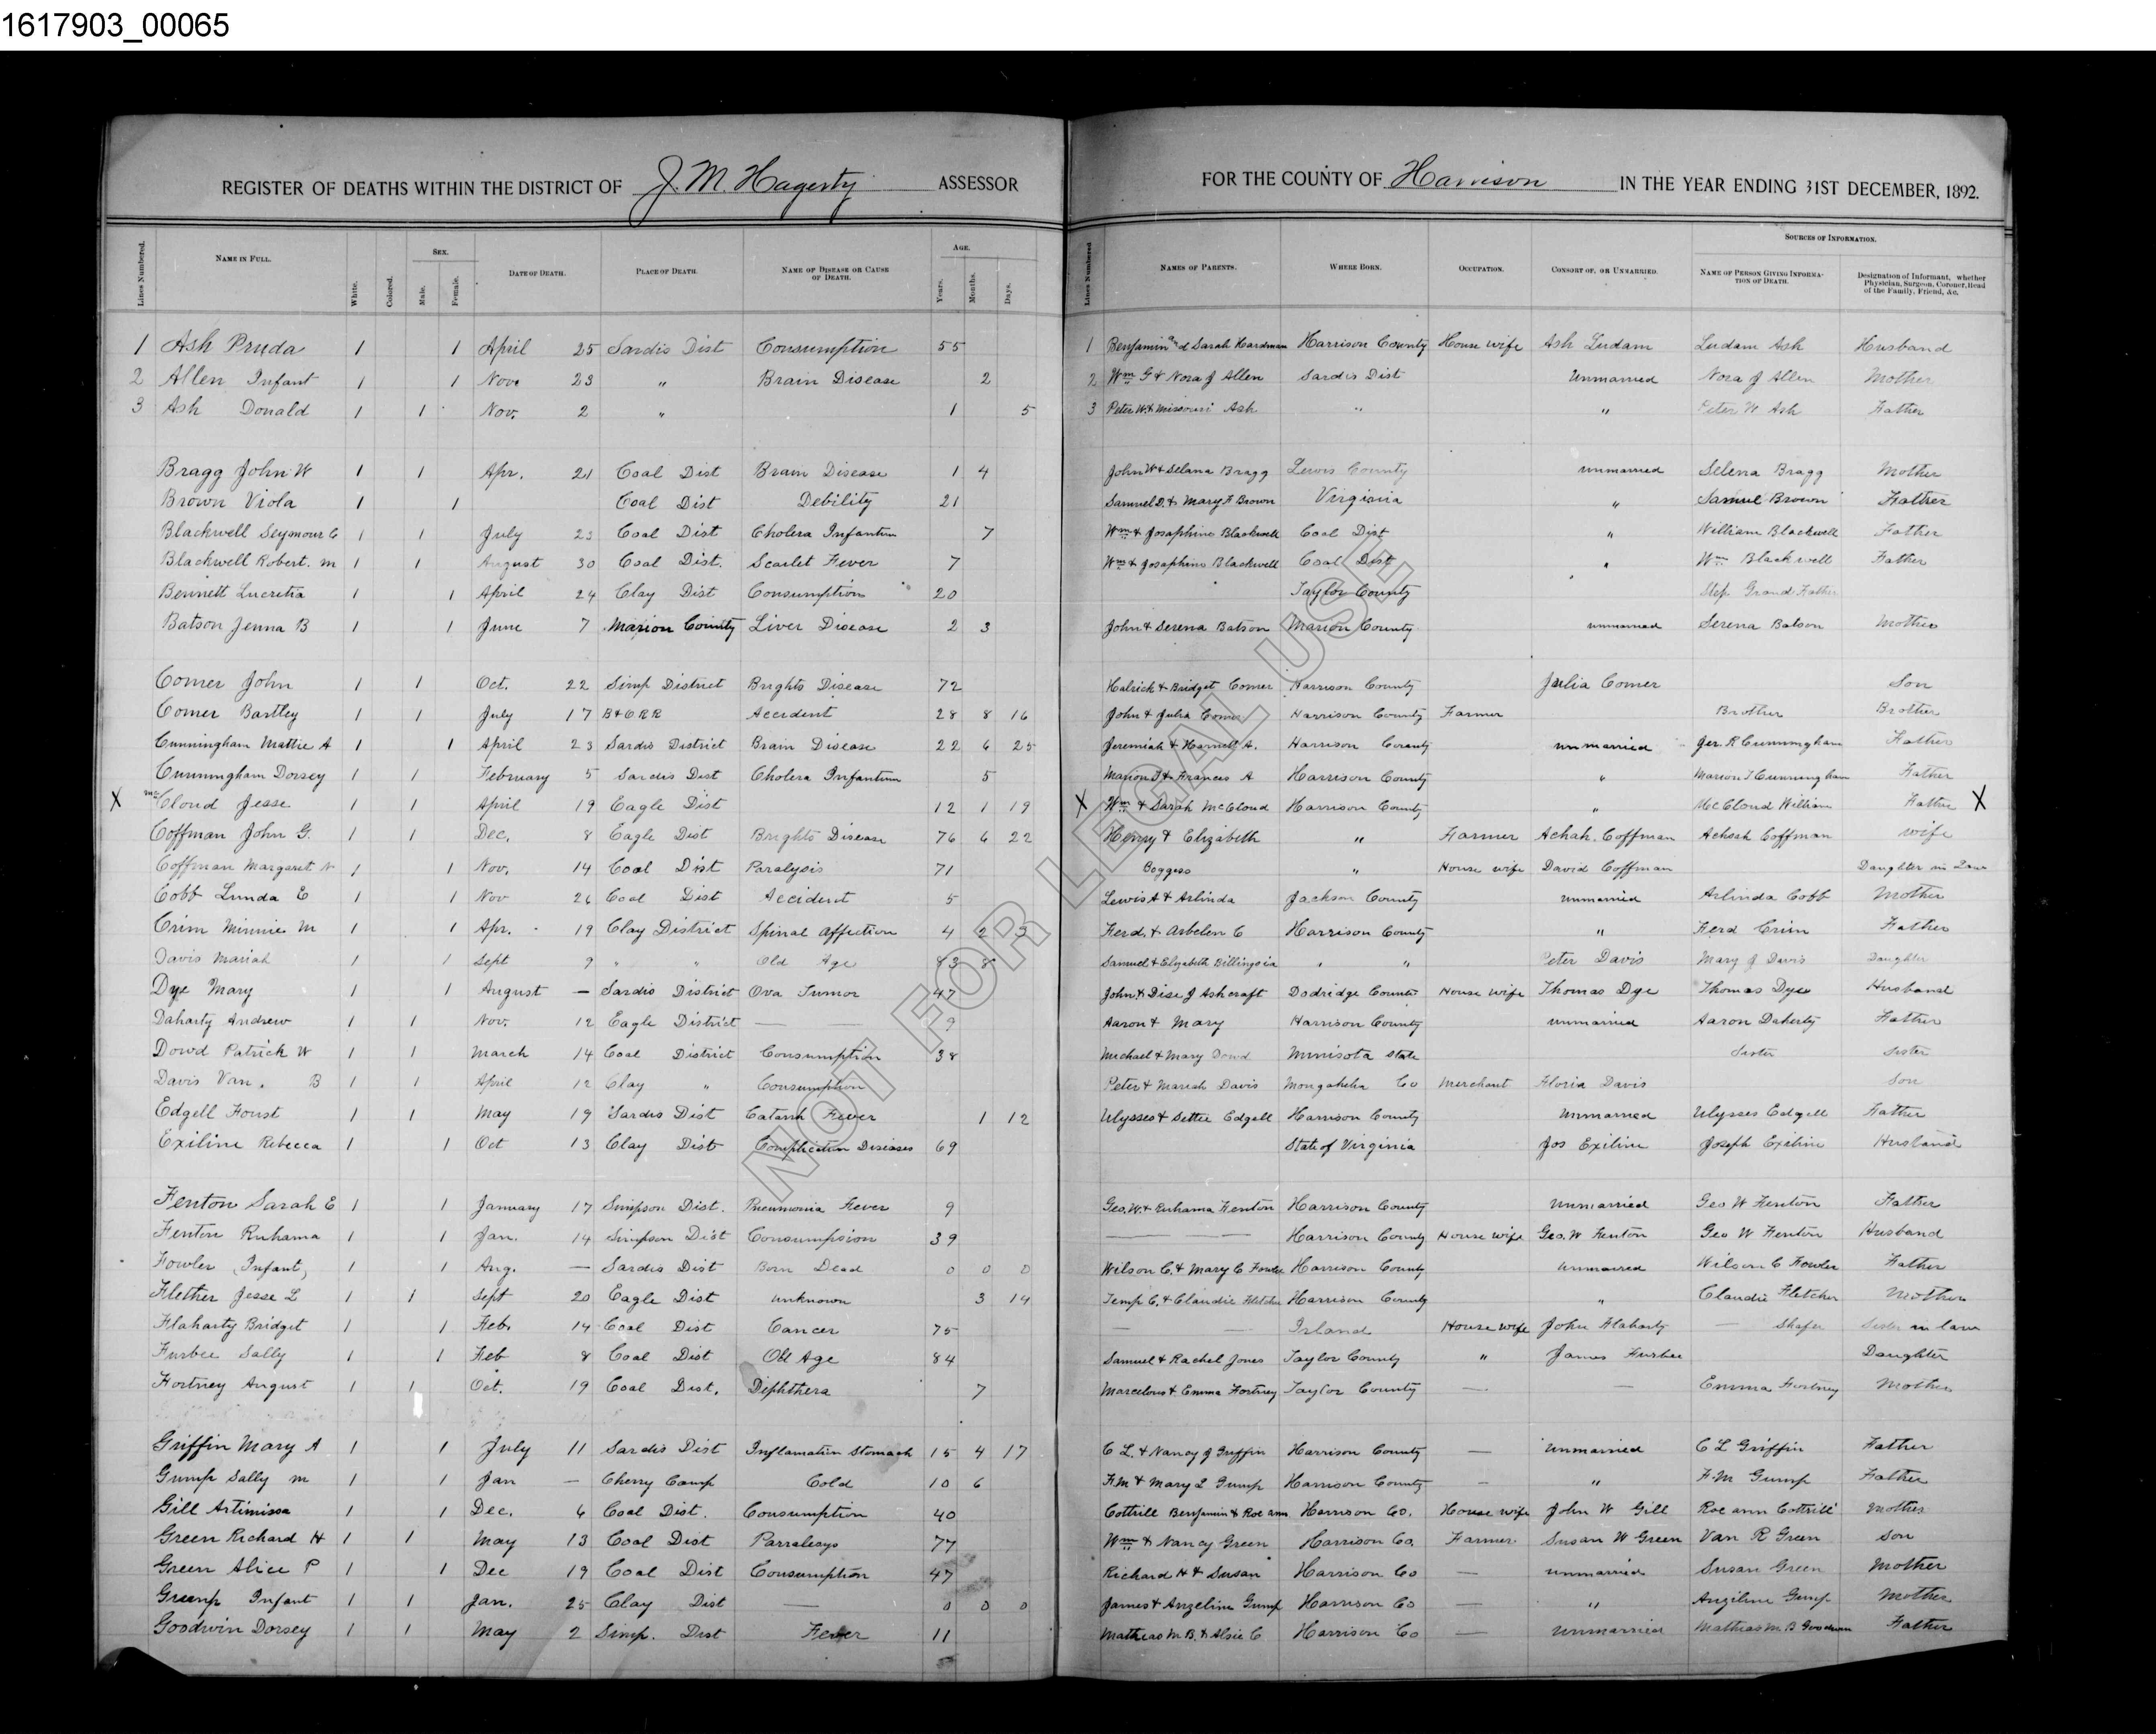 1617903_00065
REGISTER OF DEATHS WITHIN THE DISTRICT OF J. M. Hagerty ASSESSOR FOR THE COUNTY OF Harrison IN THE YEAR ENDING 31ST DECEMBER, 1892.
Lines Numbered. NAME IN FULL. White. Colored. SEX. Male. Female. DATE OF DEATH. PLACE OF DEATH. NAME OF DISEASE OR CAUSE OF DEATH. AGE. Years. Months. Days. Lines Numbered NAMES OF PARENTS. WHERE BORN. OCCUPATION. CONSORT OF, OR UNMARRIED. SOURCES OF INFORMATION. NAME OF PERSON GIVING INFORMATION OF DEATH. Designation of Informant, whether Physician, Surgeon, Coroner, Head of the Family, Friend, &c.
1 Ash Pruda 1 1 April 25 Sardis Dist Consumption 55 1 Benjamin and Sarah Hardman Harrison County House wife Ash Ludam Ludam Ash Husband
2 Allen Infant 1 1 Nov. 23 " Brain Disease 2 2 Wm G & Nora J Allen Sardis Dist Unmarried Nora J Allen Mother
3 Ash Donald 1 1 Nov. 2 " 1 5 3 Peter W. & Missouri Ash " " Peter W Ash Father
Bragg John W 1 1 Apr. 21 Coal Dist Brain Disease 1 4 John W & Selena Bragg Lewis County unmarried Selena Bragg Mother
Brown Viola 1 1 Coal Dist Debility 21 Samuel D. & Mary F Brown Virginia " Samuel Brown Father
Blackwell Seymour C 1 1 July 23 Coal Dist Cholera Infantum 7 Wm & Josephine Blackwell Coal Dist " William Blackwell Father
Blackwell Robert. M 1 1 August 30 Coal Dist. Scarlet Fever 7 Wm & Josephine Blackwell Coal Dist " Wm Blackwell Father
Bennett Lucretia 1 1 April 24 Clay Dist Consumption 20 Taylor County Step Grand Father
Batson Jenna B 1 1 June 7 Marion County Liver Disease 2 3 John & Serena Batson Marion County unmarried Serena Batson Mother
Comer John 1 1 Oct. 22 Simp District Brights Disease 72 & Bridget Comer Harrison County Julia Comer Son
Comer Bartley 1 1 July 17 B & O R R Accident 28 8 16 John & Julia Comer Harrison County Farmer Brother Brother
Cunningham Mattie A 1 1 April 23 Sardis District Brain Disease 22 6 25 Jeremiah & A. Harrison County unmarried Jer. R Cunningham Father
Cunningham Dorsey 1 1 February 5 Sardis Dist Cholera Infantum 5 Marion T & Frances A Harrison County " Marion T Cunningham Father
X McCloud Jesse 1 1 April 19 Eagle Dist 12 1 19 X Wm & Sarah McCloud Harrison County " McCloud William Father X
Coffman John G. 1 1 Dec. 8 Eagle Dist Brights Disease 76 6 22 Henry & Elizabeth " Farmer Achah. Coffman Achsah Coffman wife
Coffman Margaret 1 1 Nov. 14 Coal Dist Paralysis 71 Boggess " House wife David Coffman Daughter in Law
Cobb Lunda E 1 1 Nov 26 Coal Dist Accident 5 Lewis A & Arlinda Jackson County unmarried Arlinda Cobb Mother
Crim Minnie M 1 1 Apr. 19 Clay District Spinal Affection 4 2 3 Ferd. & Arbelen C Harrison County " Ferd Crim Father
Davis Mariah 1 1 Sept 9 " " Old Age 83 8 Samuel & Elizabeth " " Peter Davis Mary J Davis Daughter
Dye Mary 1 1 August — Sardis District Ova Tumor 47 John & Dise J Ashcraft Dodridge County House wife Thomas Dye Thomas Dye Husband
Daharty Andrew 1 1 Nov. 12 Eagle District — — 9 Aaron & Mary Harrison County unmarried Aaron Daherty Father
Dowd Patrick W 1 1 March 14 Coal District Consumption 38 Michael & Mary Dowd Minisota state Sister Sister
Davis Van. B 1 1 April 12 Clay " Consumption Peter & Mariah Davis Mongahelia Co Merchant Floria Davis Son
Edgell Foust 1 1 May 19 Sardis Dist Catarrh Fever 1 12 Ulysses & Settie Edgell Harrison County Unmarried Ulysses Edgell Father
Exiline Rebecca 1 1 Oct 13 Clay Dist Complication Diseases 69 State of Virginia Jos Exiline Joseph Exiline Husband
Fenton Sarah E 1 1 January 17 Simpson Dist. Pneumonia Fever 9 Geo. W. & Ruhama Fenton Harrison County Unmarried Geo W Fenton Father
Fenton Ruhama 1 1 Jan. 14 Simpson Dist Consumpsion 39 — — Harrison County House wife Geo. W Fenton Geo W Fenton Husband
Fowler Infant 1 1 Aug. — Sardis Dist Born Dead 0 0 0 Wilson C. & Mary C Fowler Harrison County unmarried Wilson C Fowler Father
Flether Jesse L 1 1 Sept 20 Eagle Dist unknown 3 14 Temp C. & Claudie Fletcher Harrison County " Claudie Fletcher Mother
Flaharty Bridget 1 1 Feb. 14 Coal Dist Cancer 75 — — Irland House wife John Flaharty — Shafer Sister in law
Furbee Sally 1 1 Feb 8 Coal Dist Old Age 84 Samuel & Rachel Jones Taylor County " James Furbee Daughter
Fortney August 1 1 Oct. 19 Coal Dist. Diphthera 7 Marcelous & Emma Fortney Taylor County — — Emma Fortney Mother
Griffin Mary A 1 1 July 11 Sardis Dist Inflamation Stomach 15 4 17 C L. & Nancy J Griffin Harrison County — Unmarried C L Griffin Father
Gump Sally M 1 1 Jan — Cherry Camp Cold 10 6 F. M & Mary L Gump Harrison County — " F. M Gump Father
Gill Artimissa 1 1 Dec. 6 Coal Dist. Consumption 40 Cottrill Benjamin & Roe ann Harrison Co. House wife John W Gill Roe ann Cottrill Mother
Green Richard H 1 1 May 13 Coal Dist Parralesys 77 Wm & Nancy Green Harrison Co. Farmer Susan W Green Van R Green Son
Green Alice P 1 1 Dec 19 Coal Dist Consumption 47 Richard H & Susan Harrison Co — unmarried Susan Green Mother
Infant 1 1 Jan. 25 Clay Dist — 0 0 0 James & Angeline Gump Harrison Co — " Angiline Gump Mother
Goodwin Dorsey 1 1 May 2 Simp. Dist Fever 11 Mathias M. B. & Alsie C Harrison Co — Unmarried Mathias M B Goodwin Father
NOT FOR LEGAL USE